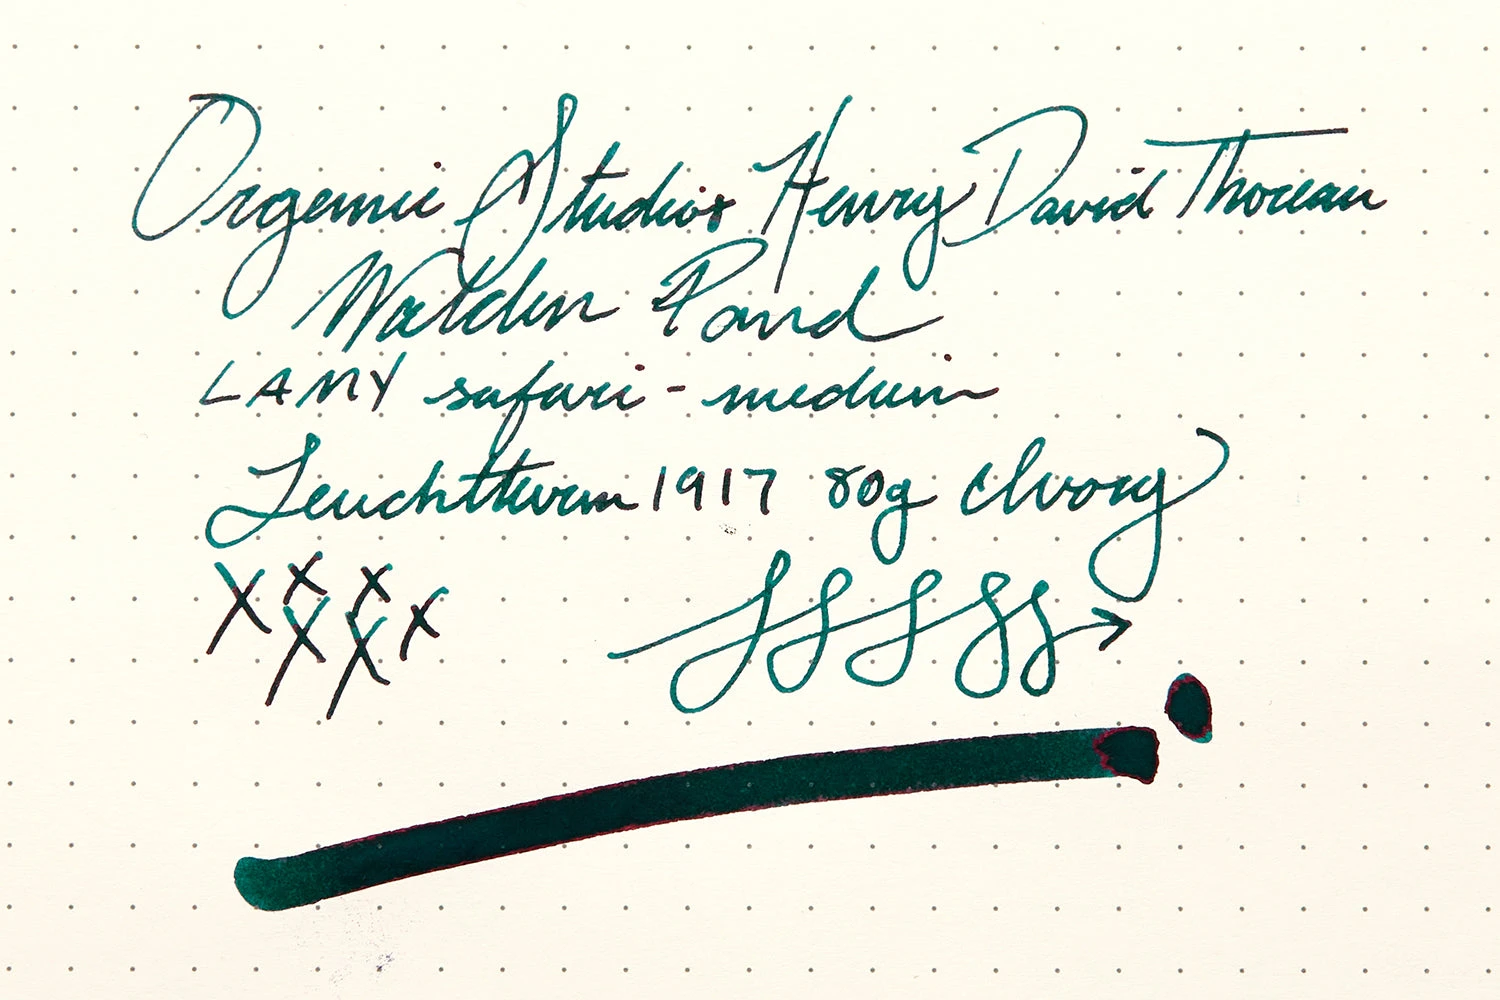 Organic Studios Henry David Thoreau
Walden Pond
LAMY safari - medium
Leuchtturm 1917 80g Ivory
x x x x x x